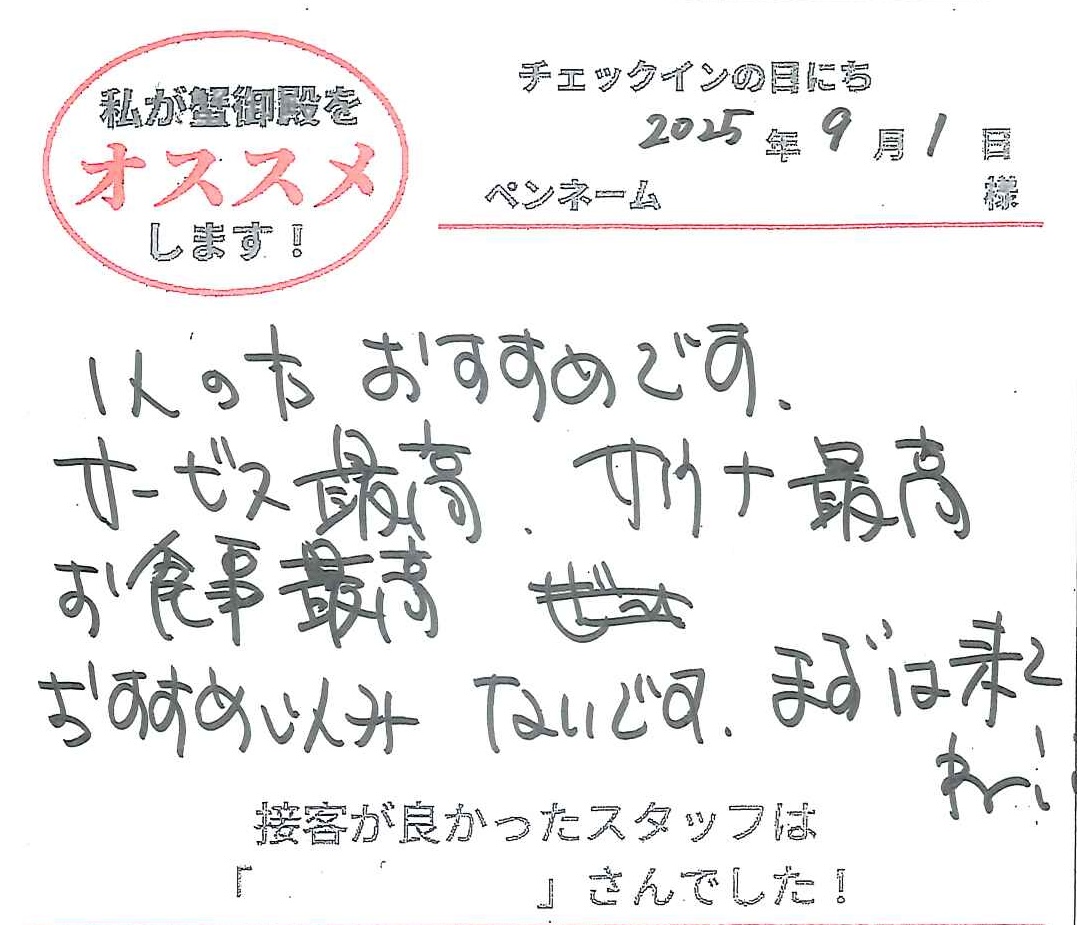 私が蟹御殿を
オススメ
します！
チェックインの日にち
2025年9月1日
ペンネーム 様
1人の方 おすすめです.
サービス最高. サウナ最高
お食事最高
おすすめ以外 ないです. まずは来て
接客が良かったスタッフは
「 」さんでした！